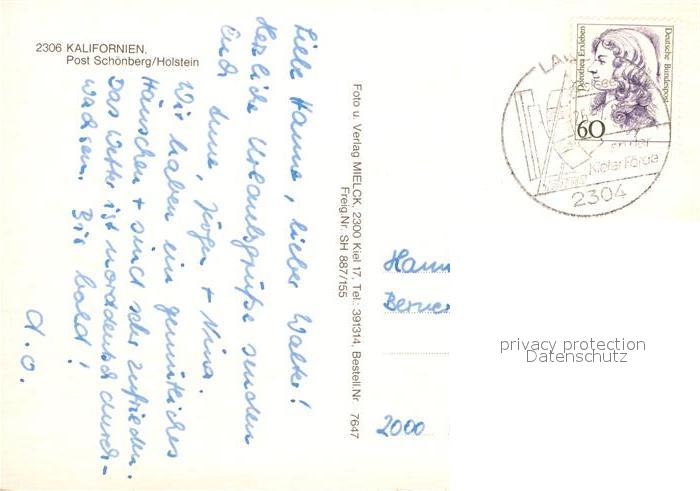 2306 KALIFORNIEN,
Post Schönberg/Holstein
Liebe Hanne, lieber Walter!
Herzliche Urlaubsgrüße senden
Euch Anne, Jürgen + Nina.
Wir haben ein gemütliches
Häuschen + sind sehr zufrieden.
Das Wetter ist norddeutsch durch-
wachsen. Bis bald!
A. O.
Foto u. Verlag MIELCK, 2300 Kiel 17, Tel.: 391314, Bestell.Nr 7647
Freig.Nr. SH 887/155
Deutsche Bundespost
Dorothea Erxleben
60
an der
Kieler Förde
2304
Hann
2000
privacy protection
Datenschutz